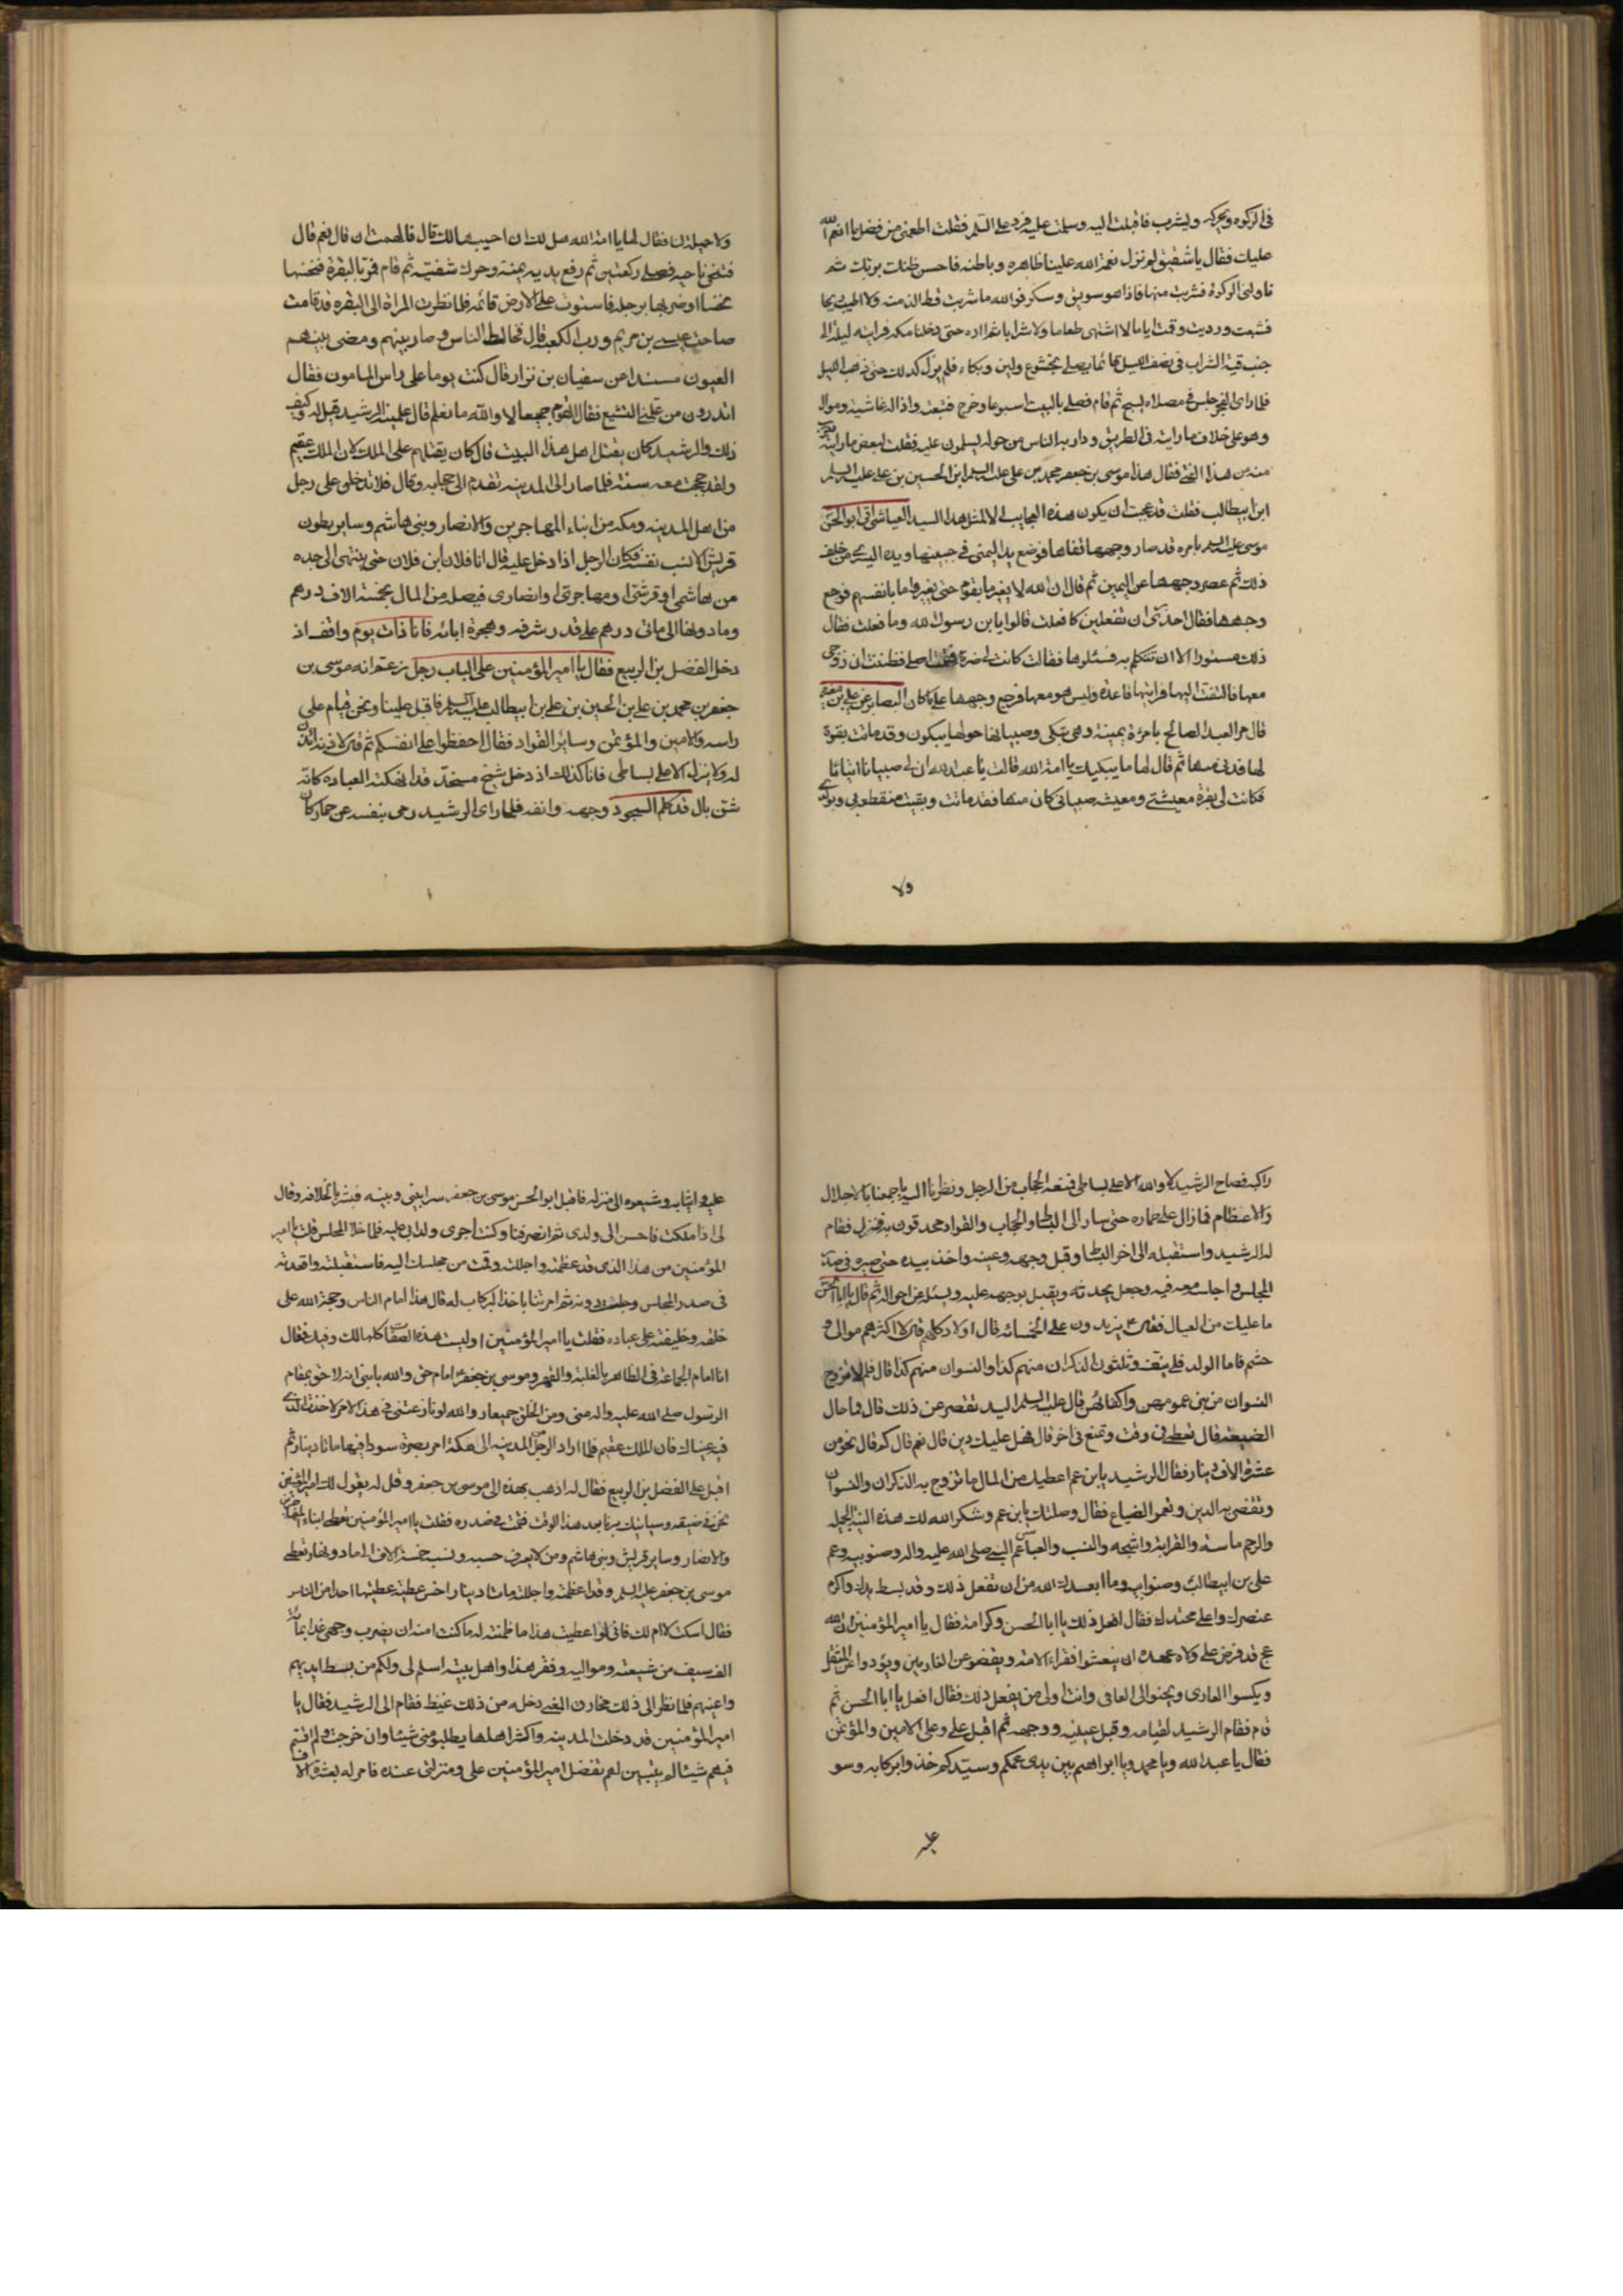 في الركوه ويحركه ويشرب فاقبلت اليه وسلمت عليه فرد علي السلم فقلت اطعمني من فضل ما انعم الله
عليك فقال يا شقيق لم تزل نعمة الله علينا ظاهره وباطنه فاحسن ظنك بربك ثم
ناولني الركوة فشربت منها فاذا هو سويق وسكر فوالله ما شربت قط الذ منه ولا اطيب ريحا
فشبعت ورويت وقمت اياما لا اشتهي طعاما ولا شرابا ثم لم اره حتى دخلنا مكه فرايته ليلة الى
جنب قبة الشراب في نصف الليل قائما يصلي بخشوع وانين وبكاء فلم يزل كذلك حتى ذهب الليل
فلما راى الفجر جلس في مصلاه يسبح ثم قام فصلى بالبيت اسبوعا وخرج فتبعته واذا له غاشيه وموال
وهو على خلاف ما رايته في الطريق ودار به الناس من حوله يسلمون عليه فقلت لبعض من رايته يقرب
منه من هذا الفتى فقال هذا موسى بن جعفر بن محمد بن علي عليه السلم ابن الحسين بن علي عليه السلم
ابن ابيطالب فقلت قد عجبت ان يكون هذه العجايب الا لمثل هذا السيد العياشي اتي ابو الحسن
موسى عليه السلم بامره قد صار وجهها قفاها فوضع يده اليمنى في جبينها ويده اليسرى من خلف
ذلك ثم عصر وجهها عن اليمين ثم قال ان الله لا يغير ما بقوم حتى يغيروا ما بانفسهم فرجع
وجهها فقال احذري ان تفعلين كما فعلت قالوا يابن رسول الله وما فعلت فقال
ذلك مستور الا ان تتكلم به فسئلوها فقالت كانت لي ضرة فقمت اصلي فظننت ان زوجي
معها فالتفت اليها فرايتها قاعدة وليس هو معها فرجع وجهها على ما كان البصاير عن علي بن مغيره
قال مر العبد الصالح بامرأة بمنى وهي تبكي وصبيانها حولها يبكون وقد ماتت بقرة
لها فدنى منها ثم قال لها ما يبكيك يا امة الله قالت يا عبد الله ان لي صبيانا ايتاما
فكانت لي بقرة معيشتي ومعيشة صبياني كان منها فقد ماتت وبقيت منقطع بي وبولدي
ولا
ولا حيلة لنا فقال لها يا امة الله هل لك ان احييها لك قال فالهمت ان قال نعم قال
فتنحى ناحيه فصلى ركعتين ثم رفع يديه يمنة وحرك شفتيه ثم قام فمر بالبقرة فنخسها
نخسا او ضربها برجله فاستوت على الارض قائمه فلما نظرت المراة الى البقره قد قامت
صاحت عيسى بن مريم ورب الكعبة قال فخالط الناس وصار بينهم ومضى بينهم
العيون مسندا عن سفيان بن نزار قال كنت يوما على راس المامون فقال
اتدرون من علمني التشيع فقال القوم جميعا لا والله ما نعلم قال علمنيه الرشيد قيل له وكيف
ذلك والرشيد كان يقتل اهل هذا البيت قال كان يقتلهم على الملك لان الملك عقيم
ولقد حججت معه سنة فلما صار الى المدينه تقدم الى حجابه وقال لا يدخلن علي رجل
من اهل المدينه ومكه من ابناء المهاجرين والانصار وبني هاشم وساير بطون
قريش الا نسب نفسه فكان الرجل اذا دخل عليه قال انا فلان ابن فلان حتى ينتهي الى جده
من هاشمي او قرشي او مهاجري او انصاري فيصله من المال بخمسة الاف درهم
وما دونها الى مائتي درهم على قدر شرفه وهجرة ابائه فانا ذات يوم واقف اذ
دخل الفضل بن الربيع فقال يا امير المؤمنين على الباب رجل زعم انه موسى بن
جعفر بن محمد بن علي بن الحسين بن علي بن ابيطالب عليه السلم فاقبل علينا ونحن قيام على
راسه والامين والمؤتمن وساير القواد فقال احفظوا على انفسكم ثم قال لاذنه ائذن
له ولا ينزل الا على بساطي فانا كذلك اذ دخل شيخ مسخد قد انهكته العباده كانه
شن بال قد كلم السجود وجهه وانفه فلما راى الرشيد رمى بنفسه عن حمار كان
راكبه فصاح الرشيد لا والله الا على بساطي فمنعه الحجاب من الترجل ونظرنا اليه باجمعنا بالاجلال
والاعظام فما زال على حماره حتى سار الى البساط والحجاب والقواد محدقون به فنزل فقام
له الرشيد واستقبله الى اخر البساط وقبل وجهه وعينه واخذ بيده حتى صيره في صدر
المجلس واجلسه معه فيه وجعل يحدثه ويقبل بوجهه عليه ويسئله عن احواله ثم قال يا ابا الحسن
ما عليك من العيال فقال يزيدون على الخمسمائه قال اولاد كلهم قال لا اكثرهم موالي و
حشم فاما الولد فلي نيف وثلثون الذكران منهم كذا والنسوان منهم كذا قال فلم لا تزوج
النسوان من بني عمومتهن واكفائهن قال عليه السلم اليد تقصر عن ذلك قال فما حال
الضيعة قال تعطي في وقت وتمنع في اخر قال فهل عليك دين قال نعم قال كم قال نحو من
عشرة الاف دينار فقال الرشيد يابن عم اعطيك من المال ما تزوج به الذكران والنسوان
وتقضي به الدين وتعمر الضياع فقال وصلتك يابن عم وشكر الله لك هذه النيه الجميله
والرحم ماسته والقرابة واشجه والنسب والعباس عم النبي صلى الله عليه واله وصنو ابيه وعم
علي بن ابيطالب وصنو ابيه وما ابعدك الله من ان تفعل ذلك وقد بسط يدك واكرم
عنصرك واعلى محتدك فقال افعل ذلك يا ابا الحسن وكرامة فقال يا امير المؤمنين ان الله
عج قد فرض على ولاة عهده ان ينعشوا فقراء الامة ويقضوا عن الغارمين ويؤدوا عن المثقل
ويكسوا العاري ويحنوا الى العافي وانت اولى من يفعل ذلك فقال افعل يا ابا الحسن ثم
قام فقام الرشيد لقيامه وقبل عينيه ووجهه ثم اقبل علي وعلى الامين والمؤتمن
فقال يا عبد الله ويا محمد ويا ابراهيم بين يدي عمكم وسيدكم خذوا بركابه وسو
عليه
عليه ثيابه وشيعوه الى منزله فاقبل ابو الحسن موسى بن جعفر سرا بيني وبينه فبشرني بالخلافه وقال
لي اذا ملكت فاحسن الى ولدي ثم انصرفنا وكنت اجرى ولد ابي عليه فلما خلا المجلس قلت يا امير
المؤمنين من هذا الذي قد عظمته واجللته وقمت من مجلسك اليه فاستقبلته واقعدته
في صدر المجلس وجلست دونه ثم امرتنا باخذ الركاب له قال هذا امام الناس وحجة الله على
خلقه وخليفته على عباده فقلت يا امير المؤمنين اوليست هذه الصفات كلها لك وفيك فقال
انا امام الجماعة في الظاهر بالغلبة والقهر وموسى بن جعفر امام حق والله يا بني انه لاحق بمقام
الرسول صلى الله عليه واله مني ومن الخلق جميعا ووالله لو نازعتني في هذا الامر لاخذت الذي
فيه عيناك فان الملك عقيم فلما اراد الرحيل من المدينه الى مكة امر بصرة سودا فيها مائتا دينار ثم
اقبل على الفضل بن الربيع فقال له اذهب بهذه الى موسى بن جعفر وقل له يقول لك امير المؤمنين
نحن في ضيقه وسياتيك برنا بعد هذا الوقت فقمت في صدره فقلت يا امير المؤمنين تعطي ابناء المهاجرين
والانصار وساير قريش وبني هاشم ومن لا يعرف حسبه ونسبه خمسة الاف الى ما دونها وتعطي
موسى بن جعفر عليه السلم وقد اعظمته واجللته مائتا دينار اخس عطية عطيتها احدا من الناس
فقال اسكت لا ام لك فاني لو اعطيت هذا ما ظمنته له ما كنت امنه ان يضرب وجهي غدا بمائة
الف سيف من شيعته ومواليه وفقر هذا واهل بيته اسلم لي ولكم من بسط ايديهم
واعينهم فلما نظر الى ذلك مخارق المغني دخله من ذلك غيظ فقام الى الرشيد فقال يا
امير المؤمنين قد دخلت المدينه واكثر اهلها يطلبو مني شيئا وان خرجت ولم اقسم
فيهم شيئا لم يتبين لهم تفضل امير المؤمنين علي ومنزلتي عنده فامر له بعشرة الاف